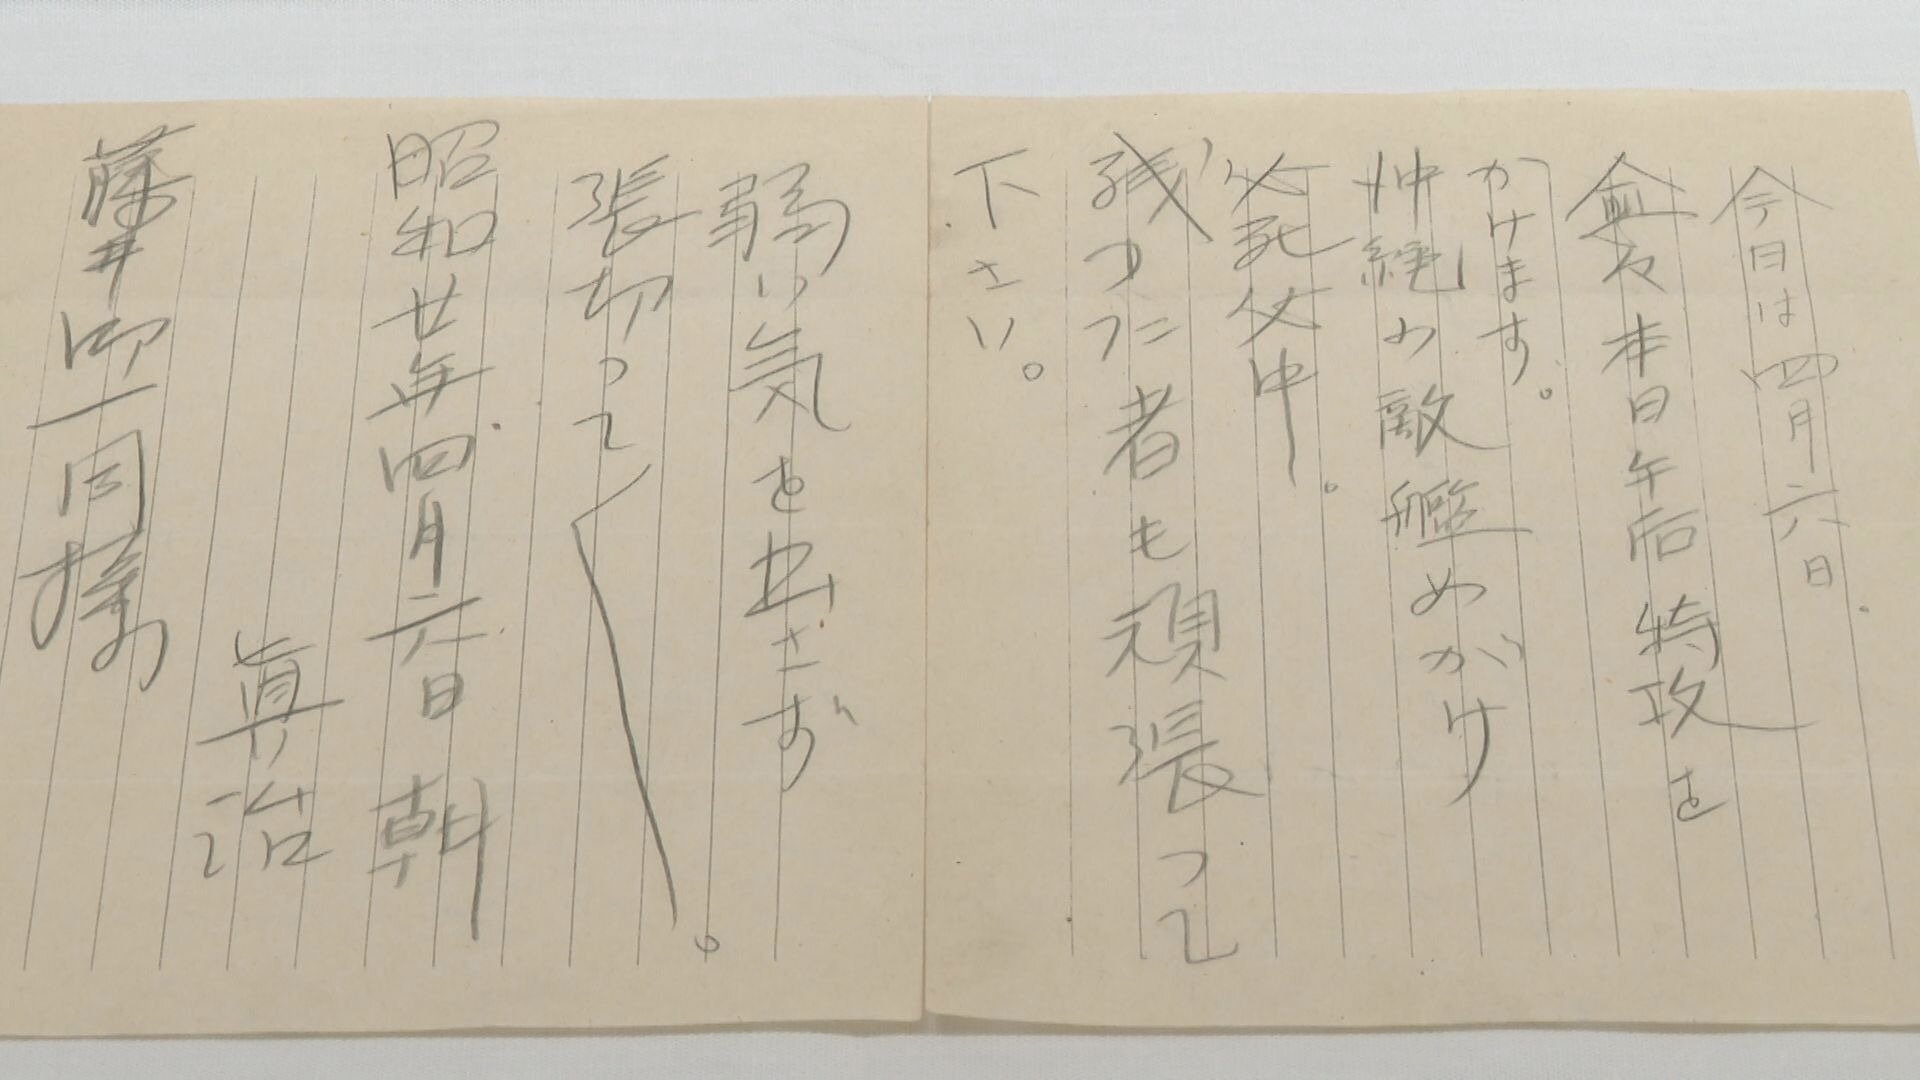 今日は四月六日.
愈々本日午后特攻を
かけます。
沖縄の敵艦めがけ
必死必中。
残つた者も頑張って
下さい。
弱い気を出さず
張切って〱。
昭和廿年四月六日朝
眞治
藤井御一同様